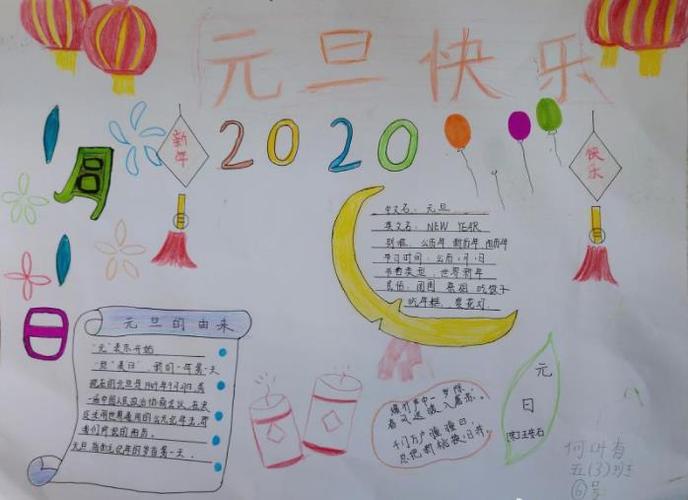 元旦快乐
2020
1
月
1
日
新年
快乐
中文名：元旦
英文名：NEW YEAR
别称：公历年 新历年 阳历年
节日时间：公历1月1日
节日类型：世界新年
元旦的由来
"元"表示开始
现在的元旦是1949年9月27日，第
一届中国人民政治协商会议，在决
们所说的阳历。
元旦，指公元纪年的岁首第一天。
爆竹声中一岁除，
春风送暖入屠苏。
千门万户曈曈日，
总把新桃换旧符。
元
日
[宋]王安石
五(3)班
⑥号